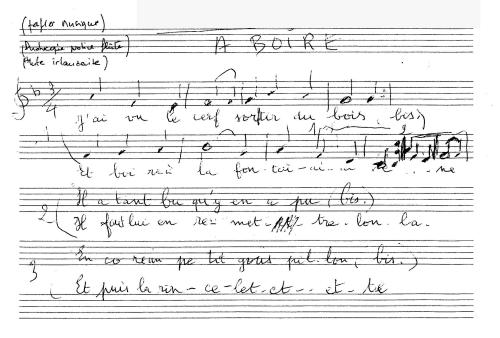 (papier musique)
flûte)
(flûte irlandaise)
A BOIRE
J'ai vu le cerf sortir du bois (bis)
Et boi re à la fon-tai-ai- ... ne
Il a tant bu qu'y en a pu (bis.)
2 Il faut lui en re- met- tre. lon. la.
En co re un pe tit pit. lon, bis.)
3
Et puis la ce-let-et-- et-te